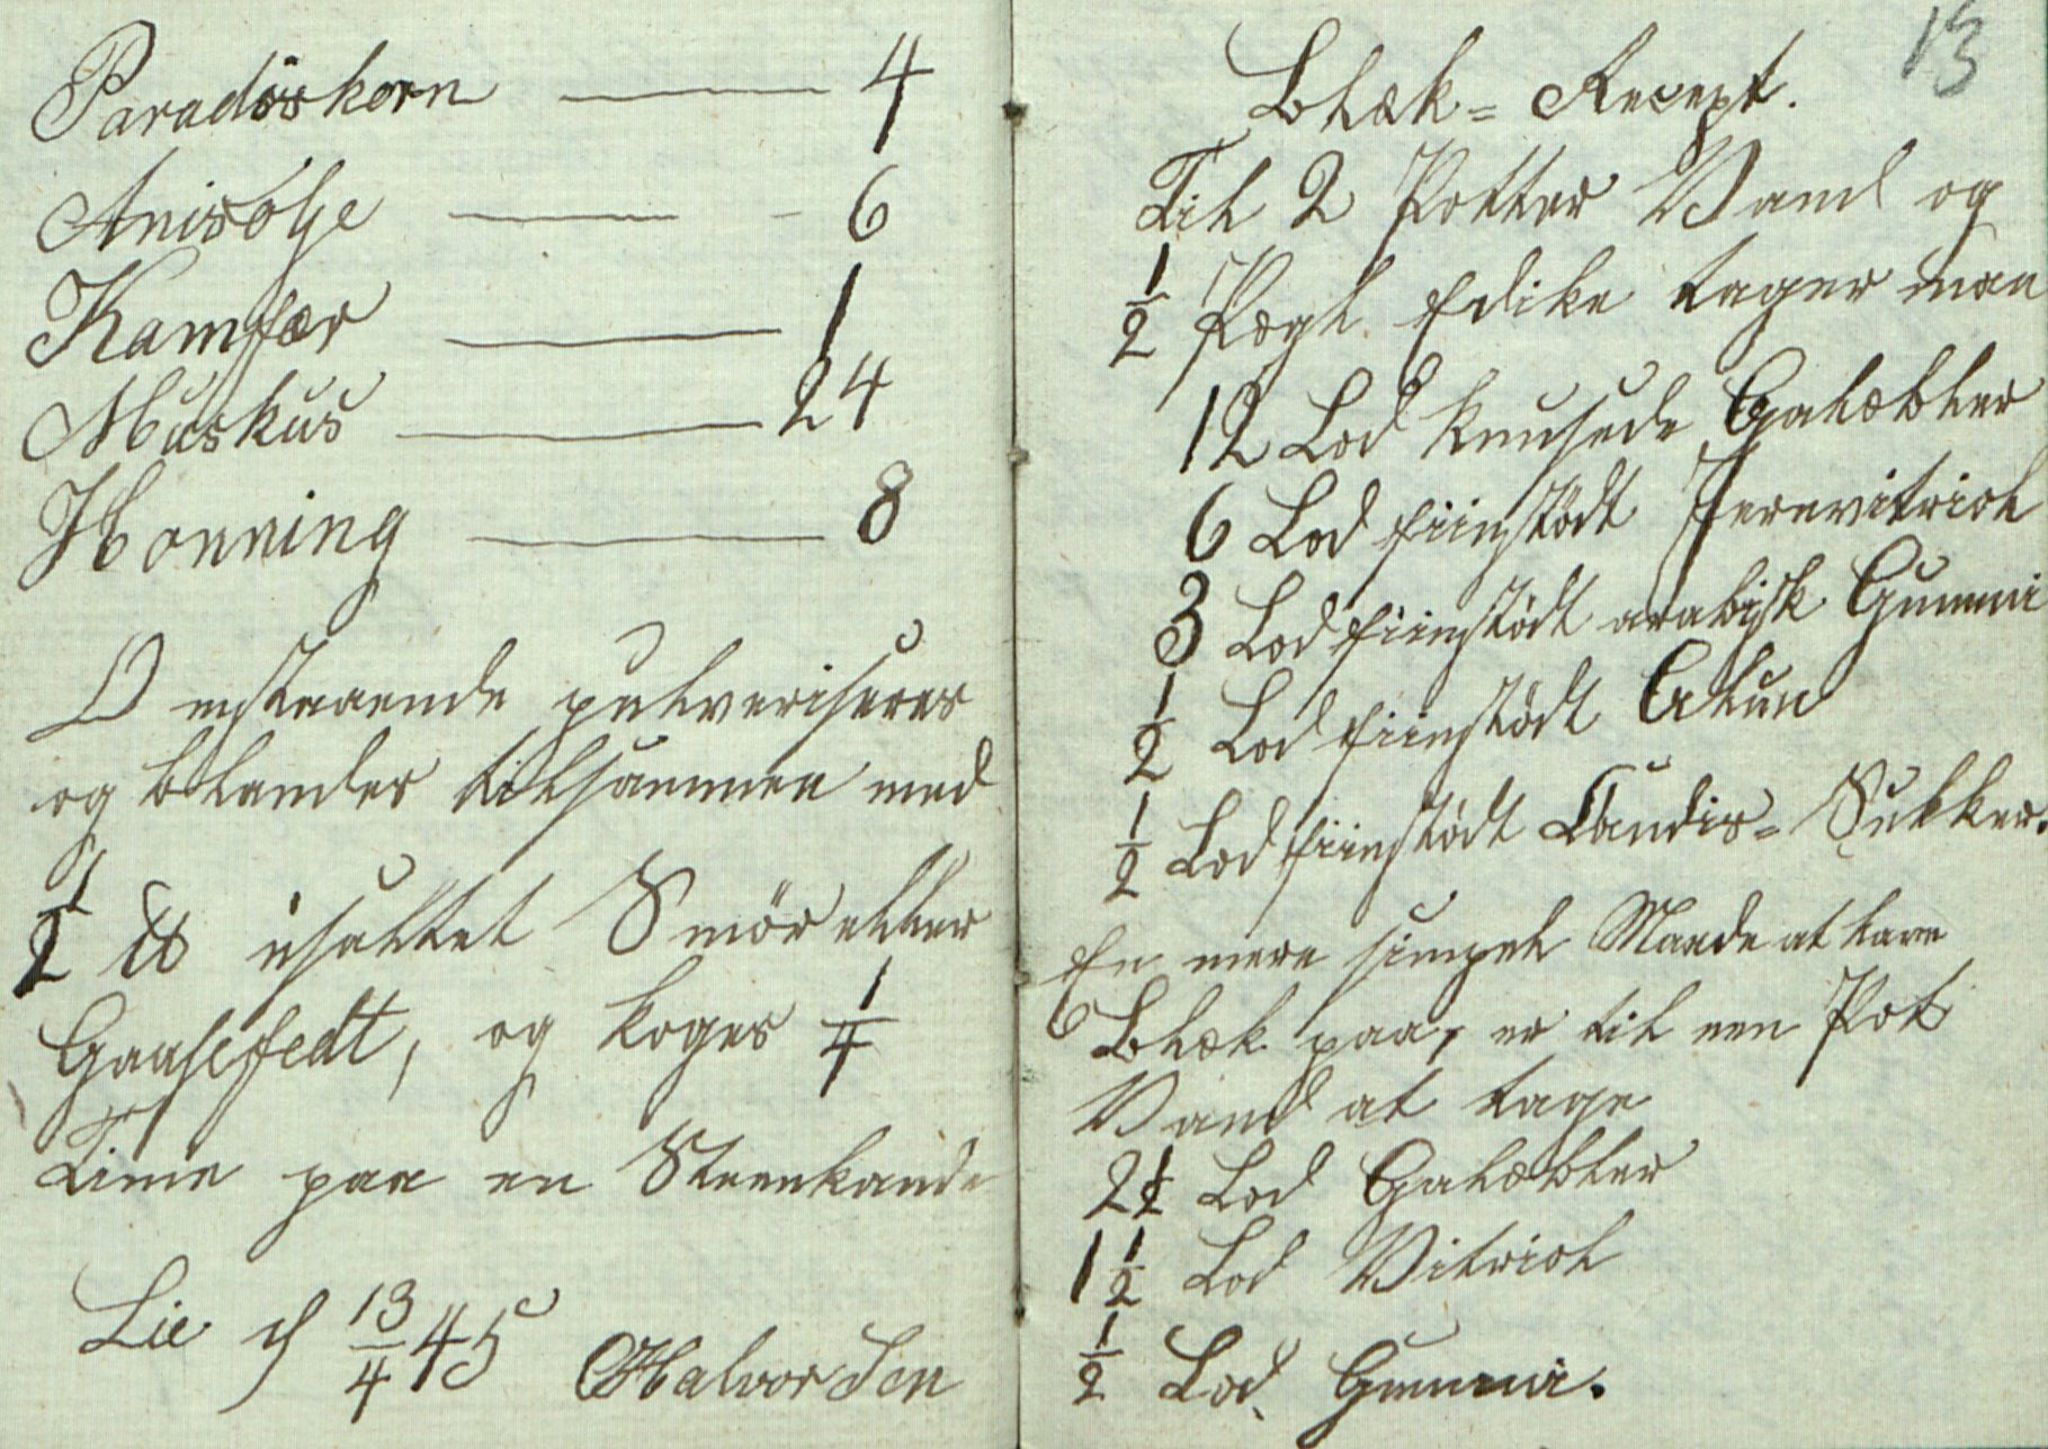 Paradiskorn — 4
Anisólje — 6
Kamfær — 1
Muskus — 24
Honning — 8
Ovnstaaende pulveriseres
og blandes tilsammen med
1/2 ℔ usaltet Smör eller
Gaasefedt, og koges 1/4
Time paa en Steenkande
Lie d 13/4 45 OHalvorsen
13
Blæk = Recept.
Til 2 Potter Vand og
1/2 Pægl Edike tager man
12 Lod knusede Galæbler
6 Lod fiinstödt Jernvitriol
3 Lod fiinstödt arabisk Gummi
1/2 Lod fiinstödt Alun
1/2 Lod fiinstödt Candis = Sukker.
En mere simpel Maade at lave
Blæk paa, er til een Pot
Vand at tage
2 1/2 Lod Galæbler
1 1/2 Lod Vitriol
1/2 Lod Gummi.